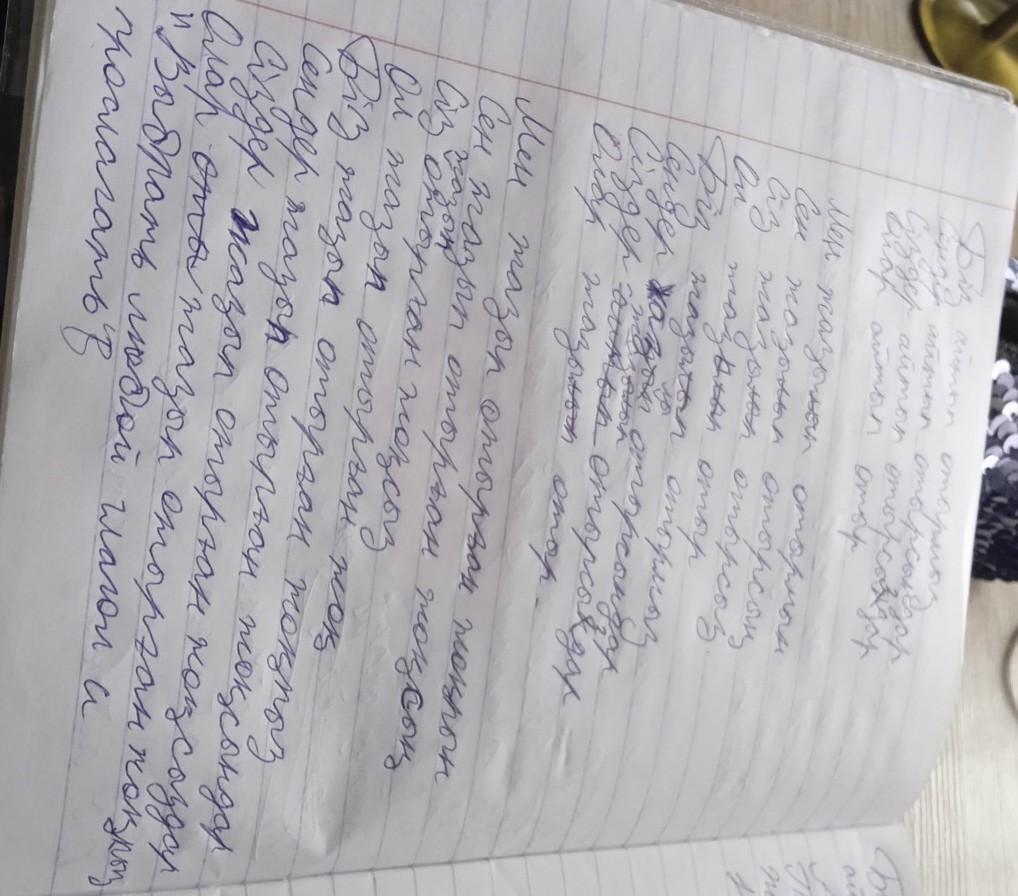 Біз айтып отырмыз
Сендер айтып отырсыңдар
Сіздер айтып отырсыздар
Олар айтып отыр
Мен жазып отырмын
Сен жазып отырсың
Сіз жазып отырсыз
Ол жазып отыр
Біз жазып отырмыз
Сендер жазып отырсыңдар
Сіздер отырсыздар
Олар жазып отыр.
Мен жазып отырған жоқпын
Сен жазып отырған жоқсың
Сіз жазып отырған жоқсыз
Ол жазып отырған жоқ
Біз жазып отырған жоқпыз
Сендер жазып отырған жоқсыңдар
Сіздер жазып отырған жоқсыздар
Олар жазып отырған жоқ
"Выбрать любой глагол и